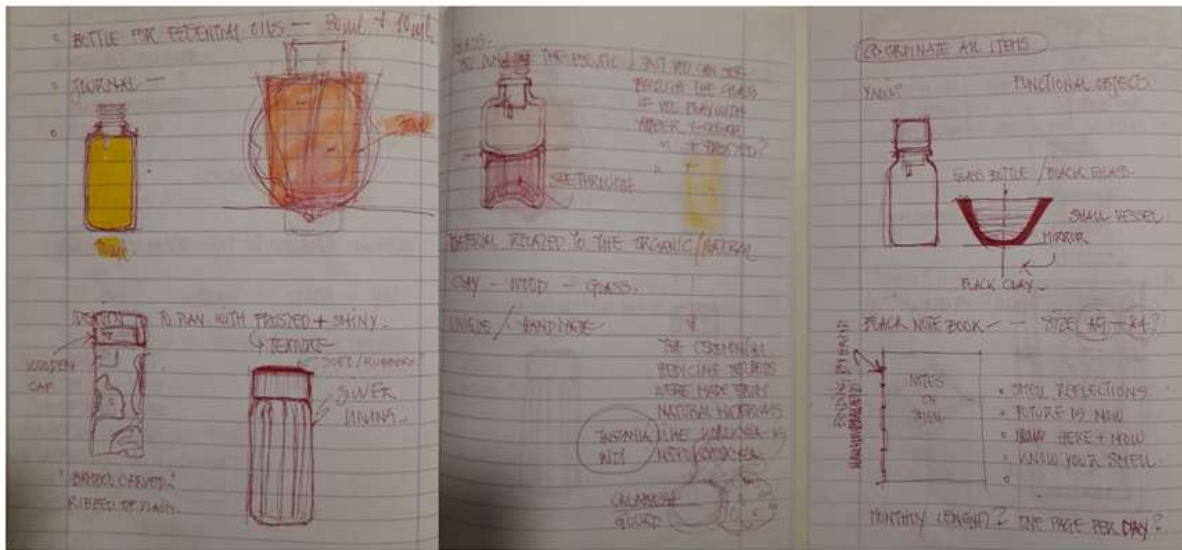 BOTTLE FOR ESSENTIAL OILS — 30ml + 10ml
JOURNAL —
WOODEN
CAP
TO PLAY WITH FROSTED + SHINY.
TEXTURE
SOFT/RUBBERY
SILVER
LINING.
CARVED"
RIBBED OR PLAIN.
GLASS.
BUT YOU CAN SEE
THROUGH THE GLASS
IF YOU PLAY WITH
+ FROSTED?
SEE THROUGH
MATERIAL RELATED TO THE ORGANIC/NATURAL
CLAY - WOOD - GLASS.
UNIQUE / HANDMADE
THE CEREMONIAL
MEDICINE
WERE MADE FROM
NATURAL MATERIALS
LIKE
CALABASH
GOURD
CO-ORDINATE ALL ITEMS
FUNCTIONAL OBJECTS
GLASS BOTTLE / BLACK GLASS
SMALL VESSEL
MIRROR
BLACK CLAY
BLACK NOTE BOOK — SIZE A5 - A4?
BINDING BY HAND
NOTES
ON
SMELL REFLECTIONS
FUTURE IS NOW
HERE + NOW
KNOW YOUR SMELL
MONTHLY LENGTH? ONE PAGE PER DAY?